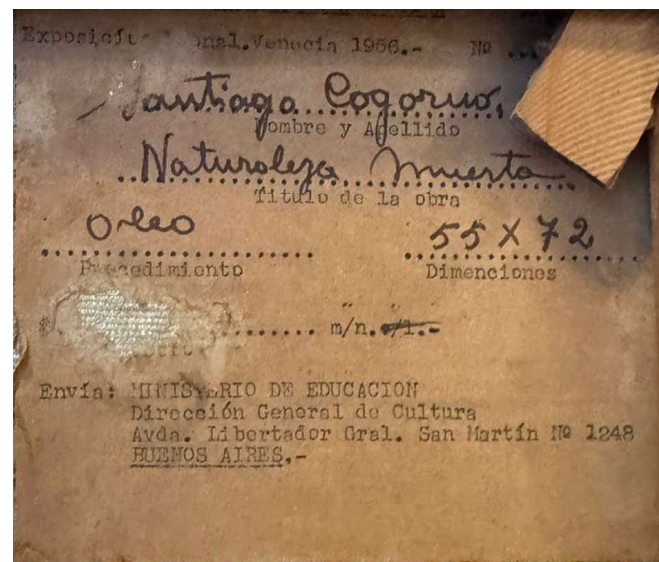 Venecia 1956.- Nº ...
Santiago Cogorno,
Nombre y Apellido
Naturaleza Muerta
Titulo de la obra
Oleo 55 X 72
Procedimiento Dimenciones
m/n. c/l.-
Envía: MINISTERIO DE EDUCACION
Dirección General de Cultura
Avda. Libertador Gral. San Martín Nº 1248
BUENOS AIRES.-